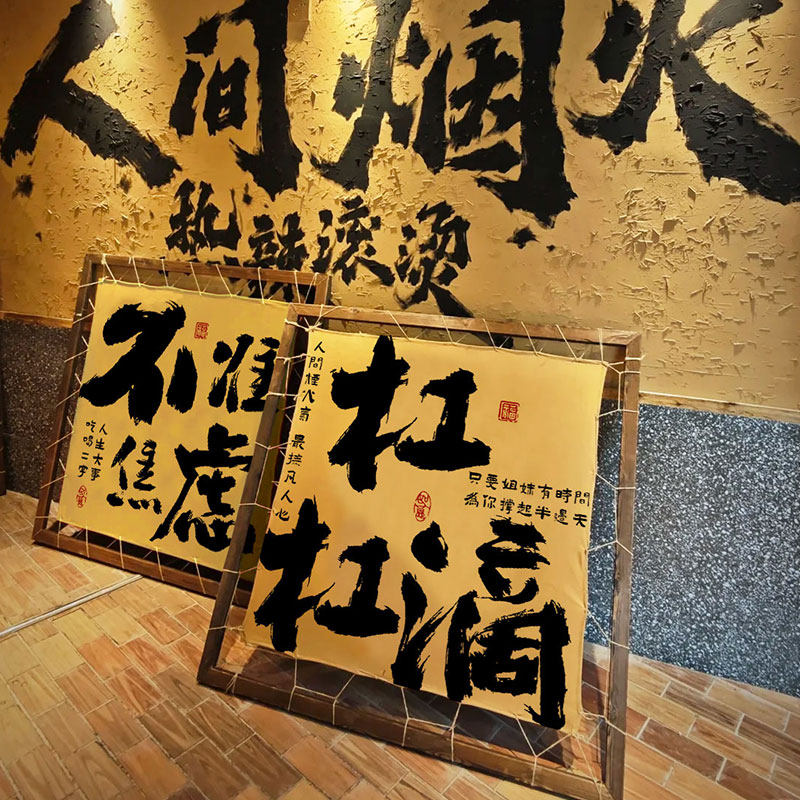 人间烟火
热辣滚烫
不准
焦虑
人生大事
吃喝二字
人間煙火氣 最撫凡人心
杠
只要姐妹有時間
為你撐起半邊天
杠滴